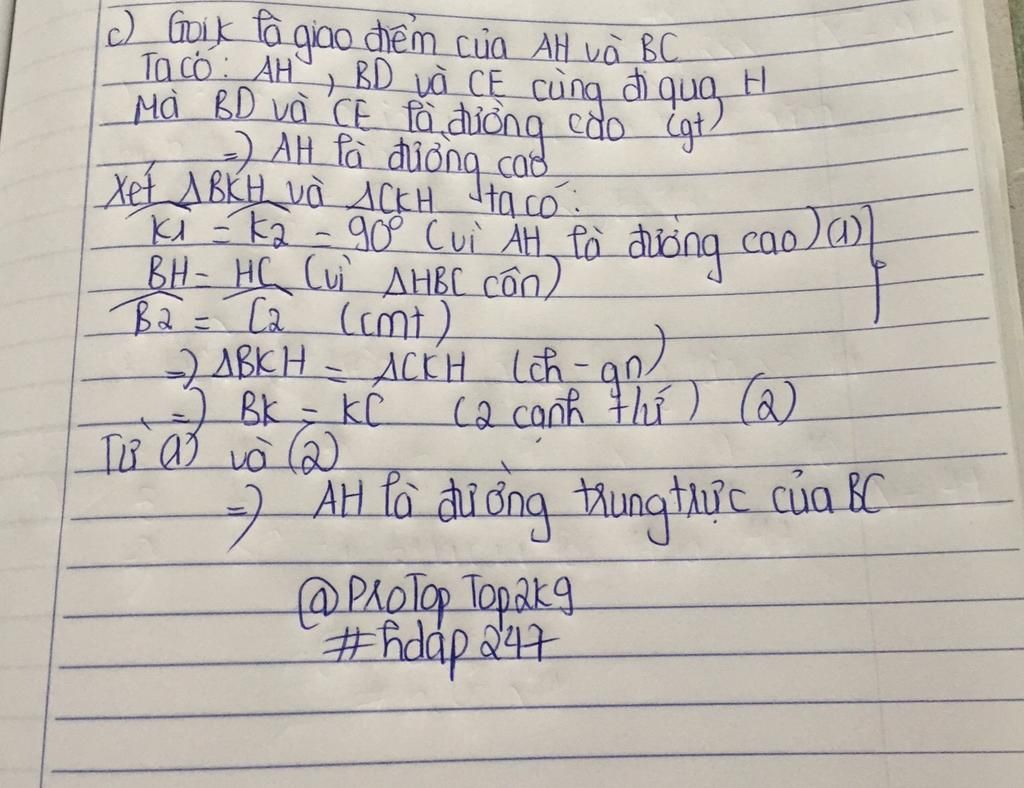 c) Gọi K là giao điểm của AH và BC
Ta có: AH, BD và CE cùng đi qua H
Mà BD và CE là đường cao (gt)
=) AH là đường cao
Xét ΔBKH và ΔCKH ta có:
K1 = K2 = 90° (vì AH là đường cao) (1)
BH = HC (vì ΔHBC cân)
B2 = C2 (cmt)
=) ΔBKH = ΔCKH (ch - gn)
=) BK = KC (2 cạnh t/ứ) (2)
Từ (1) và (2)
=) AH là đường trung trực của BC
@ProTop Top2k9
#hdap 247